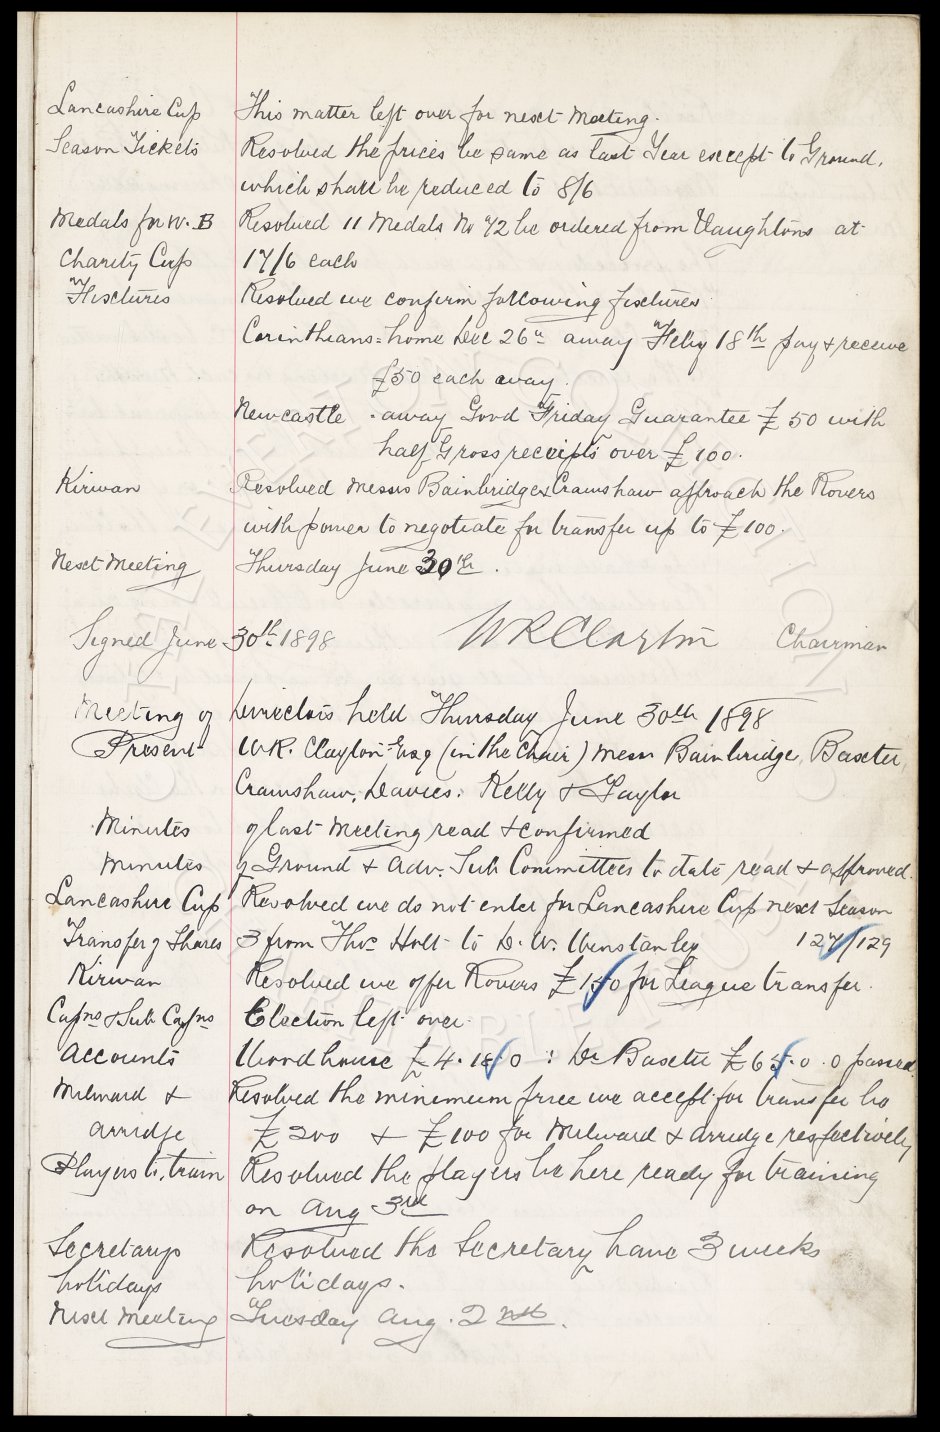 Lancashire Cup This matter left over for next Meeting.
Season Tickets Resolved the prices be same as last Year except to Ground,
which shall be reduced to 8/6
Medals for W. B Resolved 11 Medals No 72 be ordered from Vaughtons at
Charity Cup 17/6 each
Fixtures Resolved we confirm following fixtures
Corinthians = home Dec 26th away Feby 18th pay & receive
£50 each away.
Newcastle . away Good Friday Guarantee £50 with
half Gross receipts over £100.
Kirwan Resolved Messrs Bainbridge & Crawshaw approach the Rovers
with power to negotiate for transfer up to £100.
Next Meeting Thursday June 30th.
Signed June 30th 1898 W R Clayton Chairman
Meeting of Directors held Thursday June 30th 1898
Present W.R. Clayton Esq (in the Chair) Messrs Bainbridge, Baxter,
Crawshaw, Davies: Kelly & Taylor
Minutes of last Meeting read & confirmed
Minutes of Ground & Adv. Sub Committees to date read & approved.
Lancashire Cup Resolved we do not enter for Lancashire Cup next Season
Transfer of Shares 3 from Thos Holt to D. W. Unstanley 127/129
Kirwan Resolved we offer Rovers £150 for League transfer.
Capns & Sub Capns Election left over.
Accounts Woodhouse £4.18.0 : Dr Baxter £65.0.0 passed.
Milward & Resolved the minimum price we accept for transfer be
Arridge £200 & £100 for Milward & Arridge respectively
Players to train Resolved the players be here ready for training
on Aug 3rd
Secretarys Resolved the Secretary have 3 weeks
holidays holidays.
Next Meeting Tuesday Aug. 2nd.